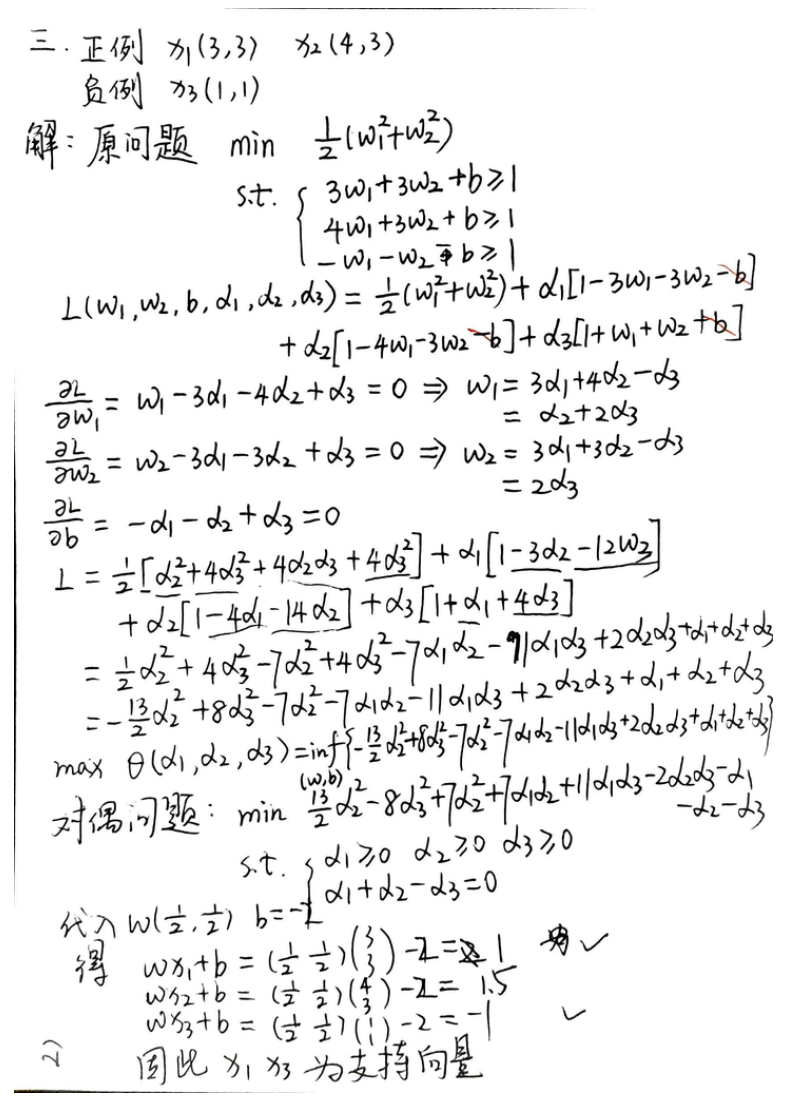 三. 正例 x₁(3,3) x₂(4,3)
负例 x₃(1,1)
解: 原问题 min ½(w₁²+w₂²)
s.t. { 3w₁+3w₂+b≥1
4w₁+3w₂+b≥1
-w₁-w₂-b≥1
L(w₁,w₂,b,α₁,α₂,α₃) = ½(w₁²+w₂²) + α₁[1-3w₁-3w₂-b]
+ α₂[1-4w₁-3w₂-b] + α₃[1+w₁+w₂+b]
∂L/∂w₁ = w₁-3α₁-4α₂+α₃ = 0 ⇒ w₁ = 3α₁+4α₂-α₃
= α₂+2α₃
∂L/∂w₂ = w₂-3α₁-3α₂+α₃ = 0 ⇒ w₂ = 3α₁+3α₂-α₃
= 2α₃
∂L/∂b = -α₁-α₂+α₃=0
L = ½[α₂²+4α₃²+4α₂α₃+4α₃²] + α₁[1-3α₂-12α₃]
+ α₂[1-4α₁-14α₂] + α₃[1+α₁+4α₃]
= ½α₂² + 4α₃² -7α₂²+4α₃²-7α₁α₂-11α₁α₃+2α₂α₃+α₁+α₂+α₃
= -13/2 α₂² +8α₃²-7α₂²-7α₁α₂-11α₁α₃+2α₂α₃+α₁+α₂+α₃
max θ(α₁,α₂,α₃)=inf{-13/2 α₂²+8α₃²-7α₂²-7α₁α₂-11α₁α₃+2α₂α₃+α₁+α₂+α₃}
(w,b)
对偶问题: min 13/2 α₂²-8α₃²+7α₂²+7α₁α₂+11α₁α₃-2α₂α₃-α₁
-α₂-α₃
s.t. { α₁≥0 α₂≥0 α₃≥0
α₁+α₂-α₃=0
代入 w(½,½) b=-2
得 wx₁+b = (½ ½)(3 3)-2= 1 ✓
wx₂+b = (½ ½)(4 3)-2= 1.5
wx₃+b = (½ ½)(1 1)-2=-1 ✓
2) 因此 x₁ x₃ 为支持向量